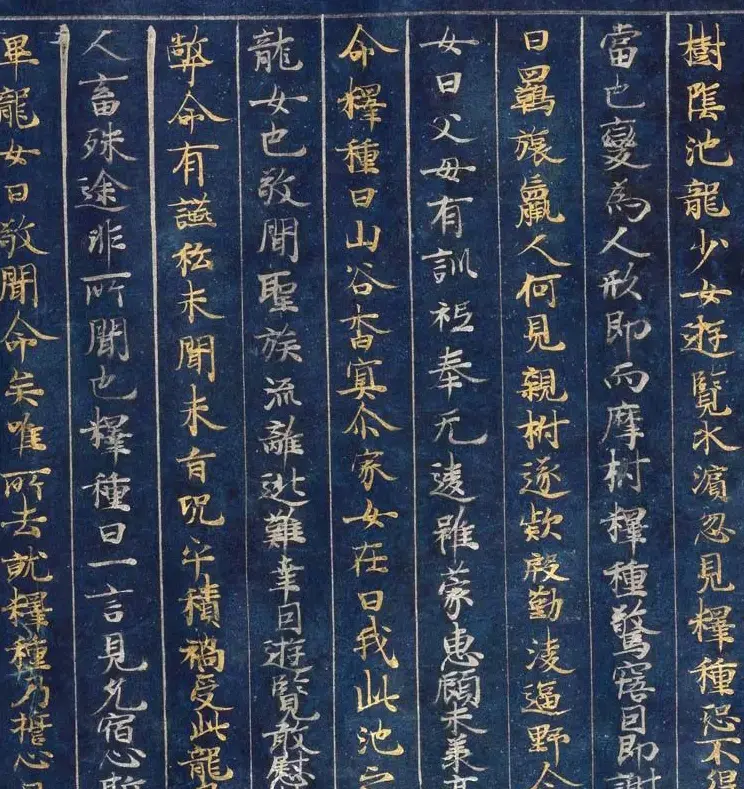 樹陰池龍少女遊覽水濵忽見釋種恐不得
當也變為人形即而摩拊釋種驚寤因即謝
曰羇旅羸人何見親拊遂欵殷勤淩逼野合
女曰父母有訓祗奉无違雖蒙惠顧未義高
命釋種曰山谷杳冥尒家女在曰我此池之
龍女也敬聞聖族流離逃難幸因遊覽敢慰
弊命有讌私未聞未旨咒乎積禍受此龍身
人畜殊途非所聞也釋種曰一言見允宿心斯
畢龍女曰敬聞命矣唯所去就釋種乃擔心曰